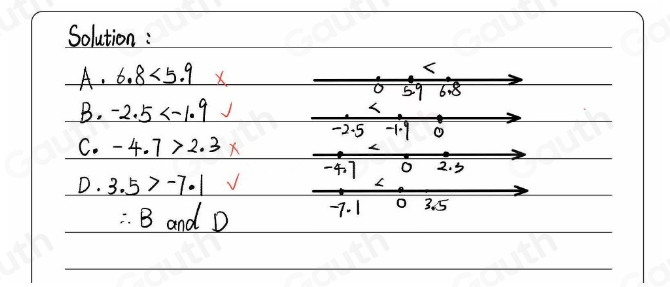 Solution :
A. 6.8 < 5.9 ×
<
0 5.9 6.8
B. -2.5 < -1.9 ✓
<
-2.5 -1.9 0
C. -4.7 > 2.3 ×
<
-4.7 0 2.3
D. 3.5 > -7.1 ✓
<
-7.1 0 3.5
∴ B and D
Gauth